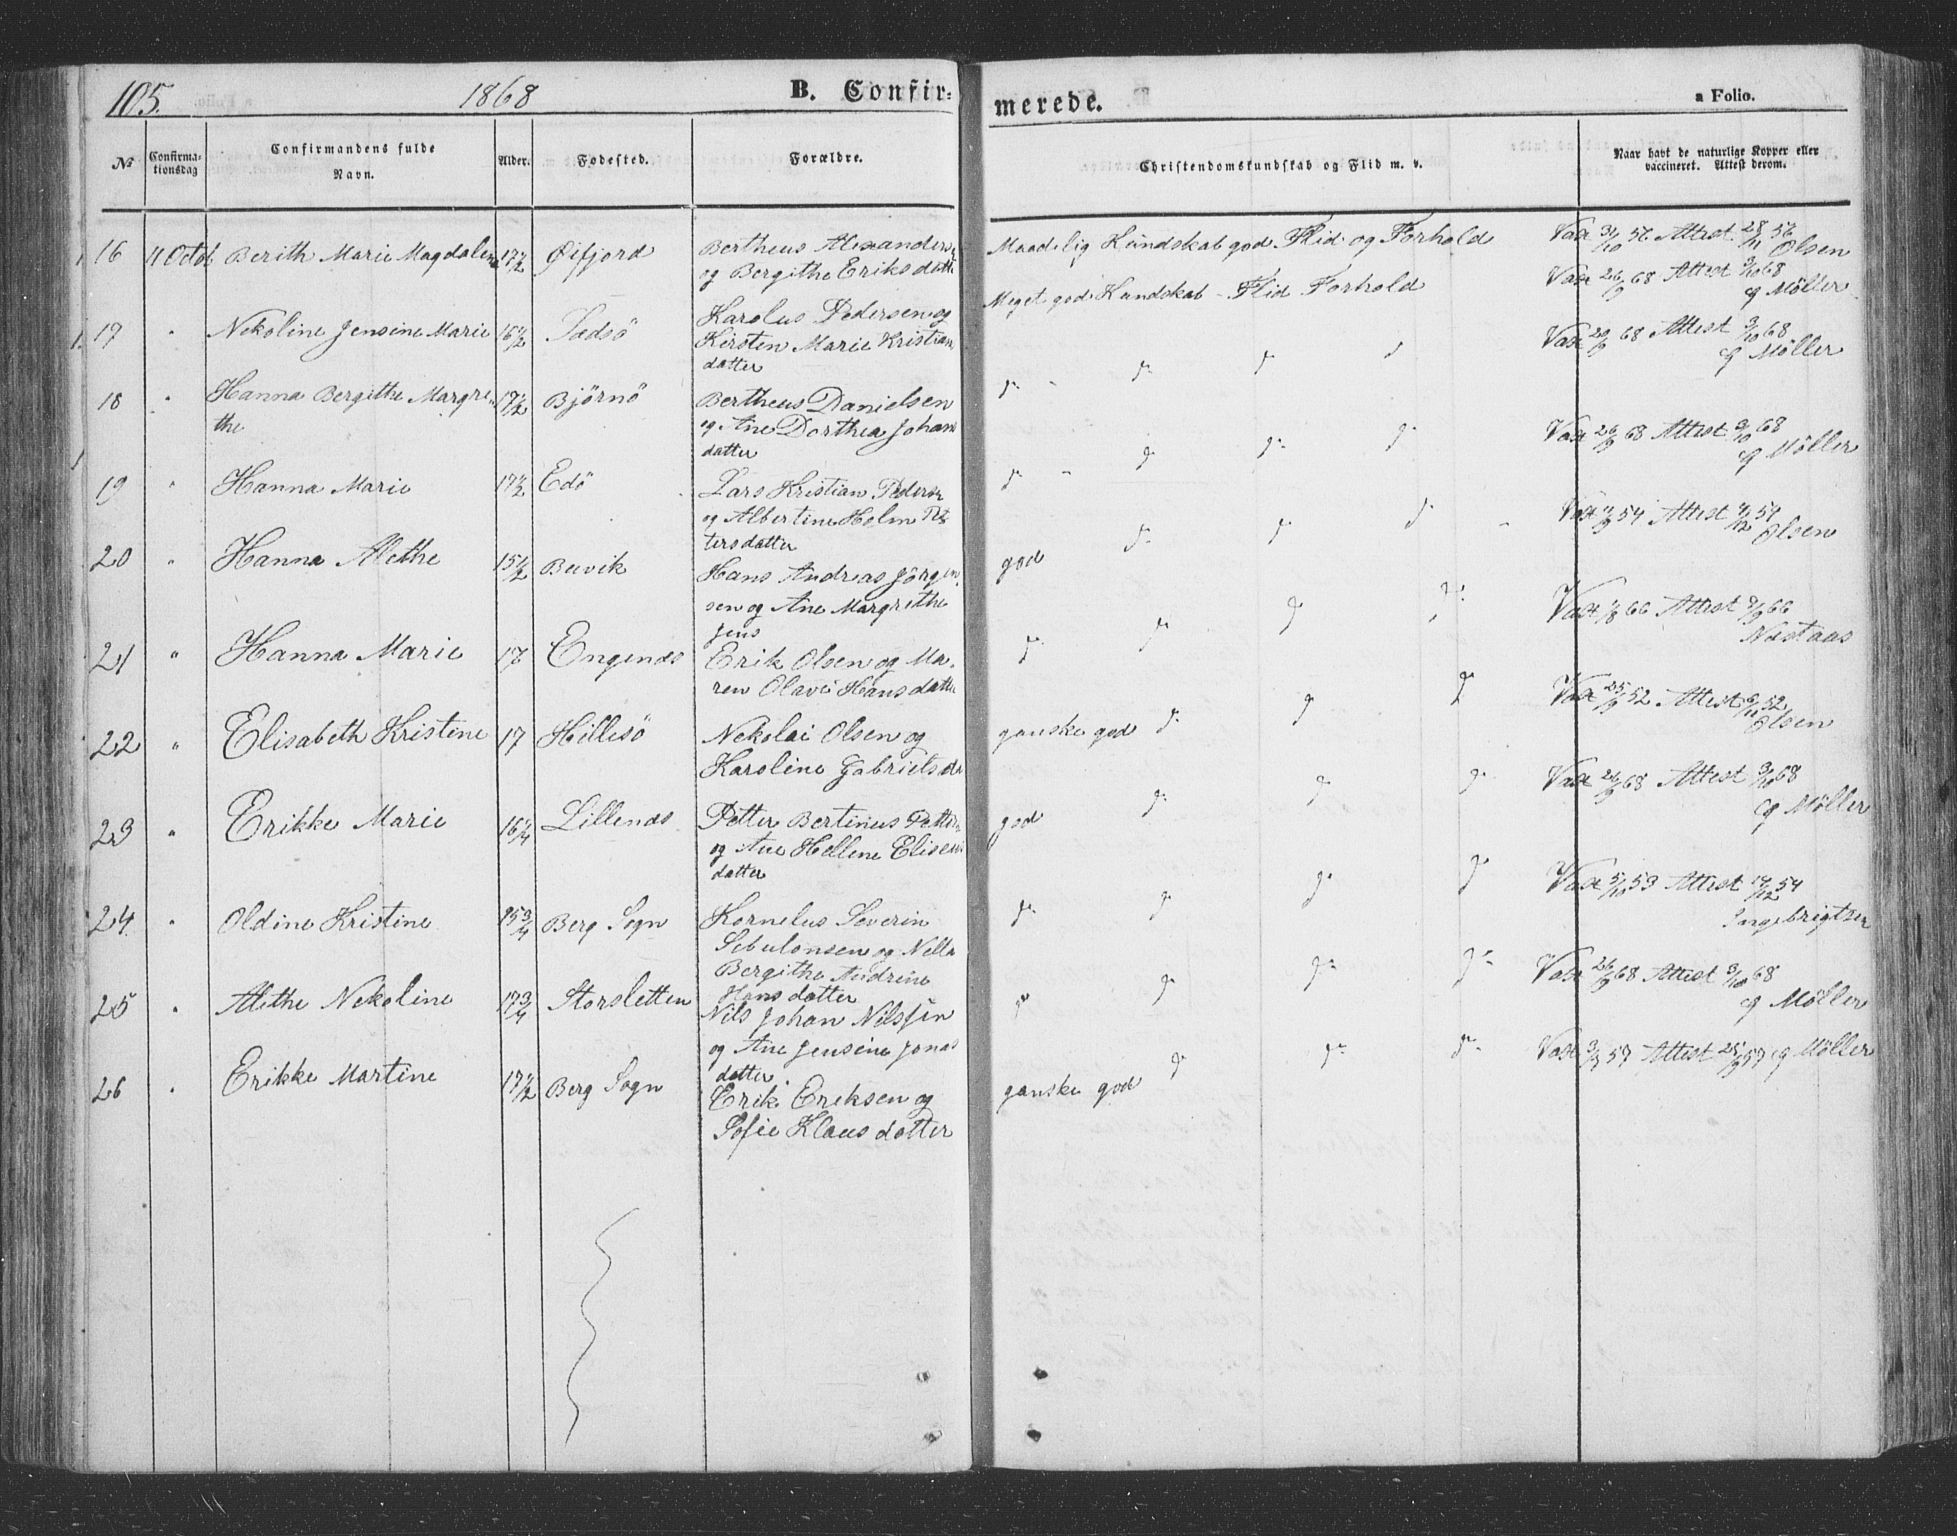 105. 1868 B. Confir-
merede. a Folio.
№ Confirma-tionsdag Confirmandens fulde Navn. Alder. Fødested. Forældre. Christendomskundskab og Flid m. v. Naar havt de naturlige Kopper eller vaccineret. Attest derom.
16 11 Octob Berith Marie Magdalene 17 1/2 Øifjord Bertheus Alexanders
og Bergithe Eriksdatter
Maadelig Kundskab god Flid og Forhold Vacc 31/10 56 Attest 28/11 56
Olsen
17 " Nekoline Jensine Marie 16 1/2 Sadsö Karolus Pedersen og
Kirsten Marie Kristian
datter
Meget god Kundskab - Flid Forhold Vacc 26/9 68 Attest 3/10 68
g Møller
18 " Hanna Bergithe Margre-
the
17 1/2 Björnö Bertheus Danielsen
og Ane Dorthea Johans
datter
d° - d° d° d° Vacc 29/9 68 Attest 3/10 68
g Møller
19 " Hanna Marie 17 1/2 Edö Lars Kristian Peders
og Albertine Holm Pe
tersdatter
d° - d° d° d° Vacc 26/9 68 Attest 3/10 68
g Møller
20 " Hanna Alethe 15 1/2 Buvik Hans Andreas Jörgen
sen og Ane Margrethe
Jens
god d° d° d° Vacc 54 Attest 54
Olsen
21 " Hanna Marie 17 Engenæs Erik Olsen og Ma-
ren Olava Hansdatter
d° d° d° d° Vacc 66 Attest 66
Næstaas
22 " Elisabeth Kristine 17 Hillesö Nekolai Olsen og
Karoline Gabrielsdr
ganske god d° d° d° Vacc 25/9 52 Attest 52
Olsen
23 " Erikke Marie 16 1/4 Lillenæs Petter Bertinus Petters
og Ane Hellene Elisæus
datter
god d° d° d° Vacc 26/9 68 Attest 3/10 68
g Møller
24. " Oldine Kristine 15 3/4 Berg Sogn Kornelus Severin
Sebulonsen og Nella
Bergithe Andrine
Hansdatter
d° d° d° d° Vacc 5/10 53 Attest 14/12 54
Ingebrigtsen
25 " Alethe Nekoline 17 3/4 Storsletten Nils Johan Nilssen
og Ane Jensine Jonas
datter
d° d° d° d° Vacc 26/9 68 Attest 3/10 68
g Møller
26 " Erikke Martine 17 1/2 Berg Sogn Erik Eriksen og
Sofie Klausdatter
ganske god d° d° d° Vacc 57 Attest 25/9 57 g Møller